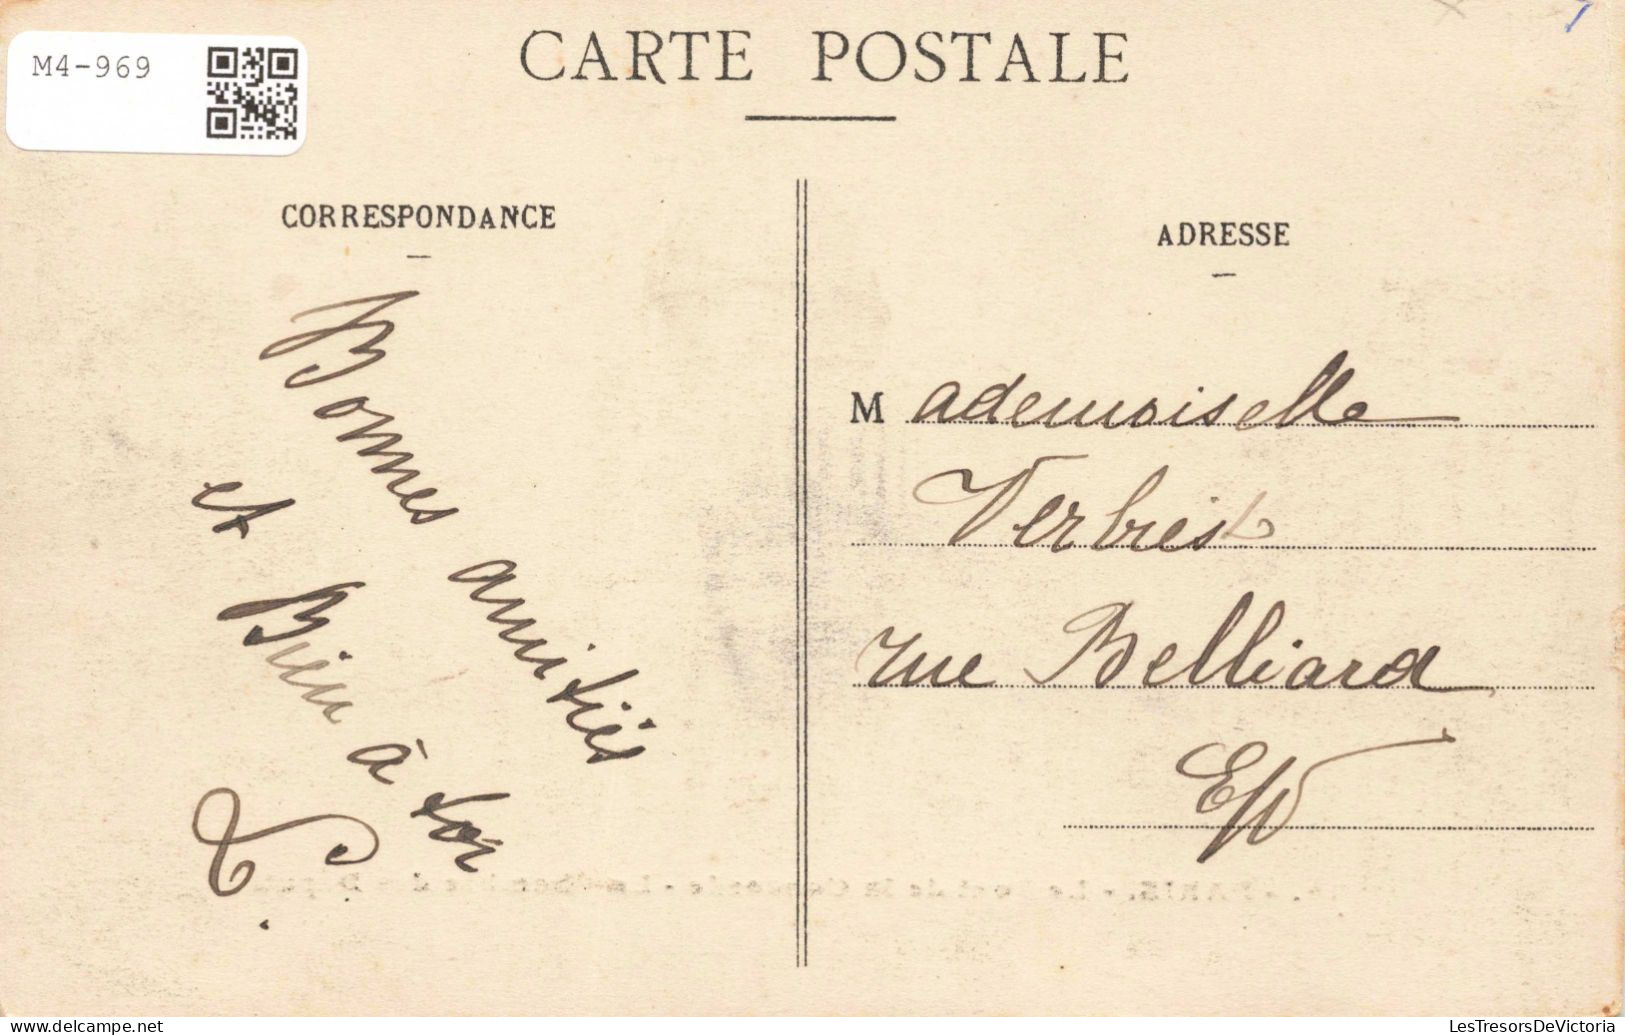 M4-969
CARTE POSTALE
CORRESPONDANCE
Bonnes amitiés
et Bien à toi
ADRESSE
Mademoiselle
Verbist
rue Belliard
E/V
www.delcampe.net
LesTresorsDeVictoria